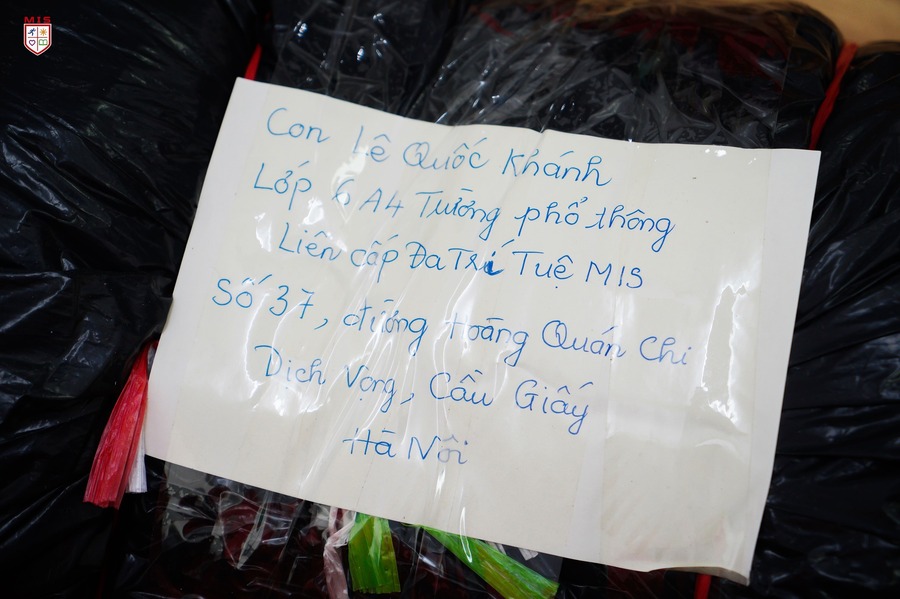 MIS
Con Lê Quốc Khánh
Lớp 6 A4 Tường phổ thông
Liên cấp Đa Trí Tuệ MIS
Số 37, đường Hoàng Quán Chi
Dịch Vọng, Cầu Giấy
Hà Nôi